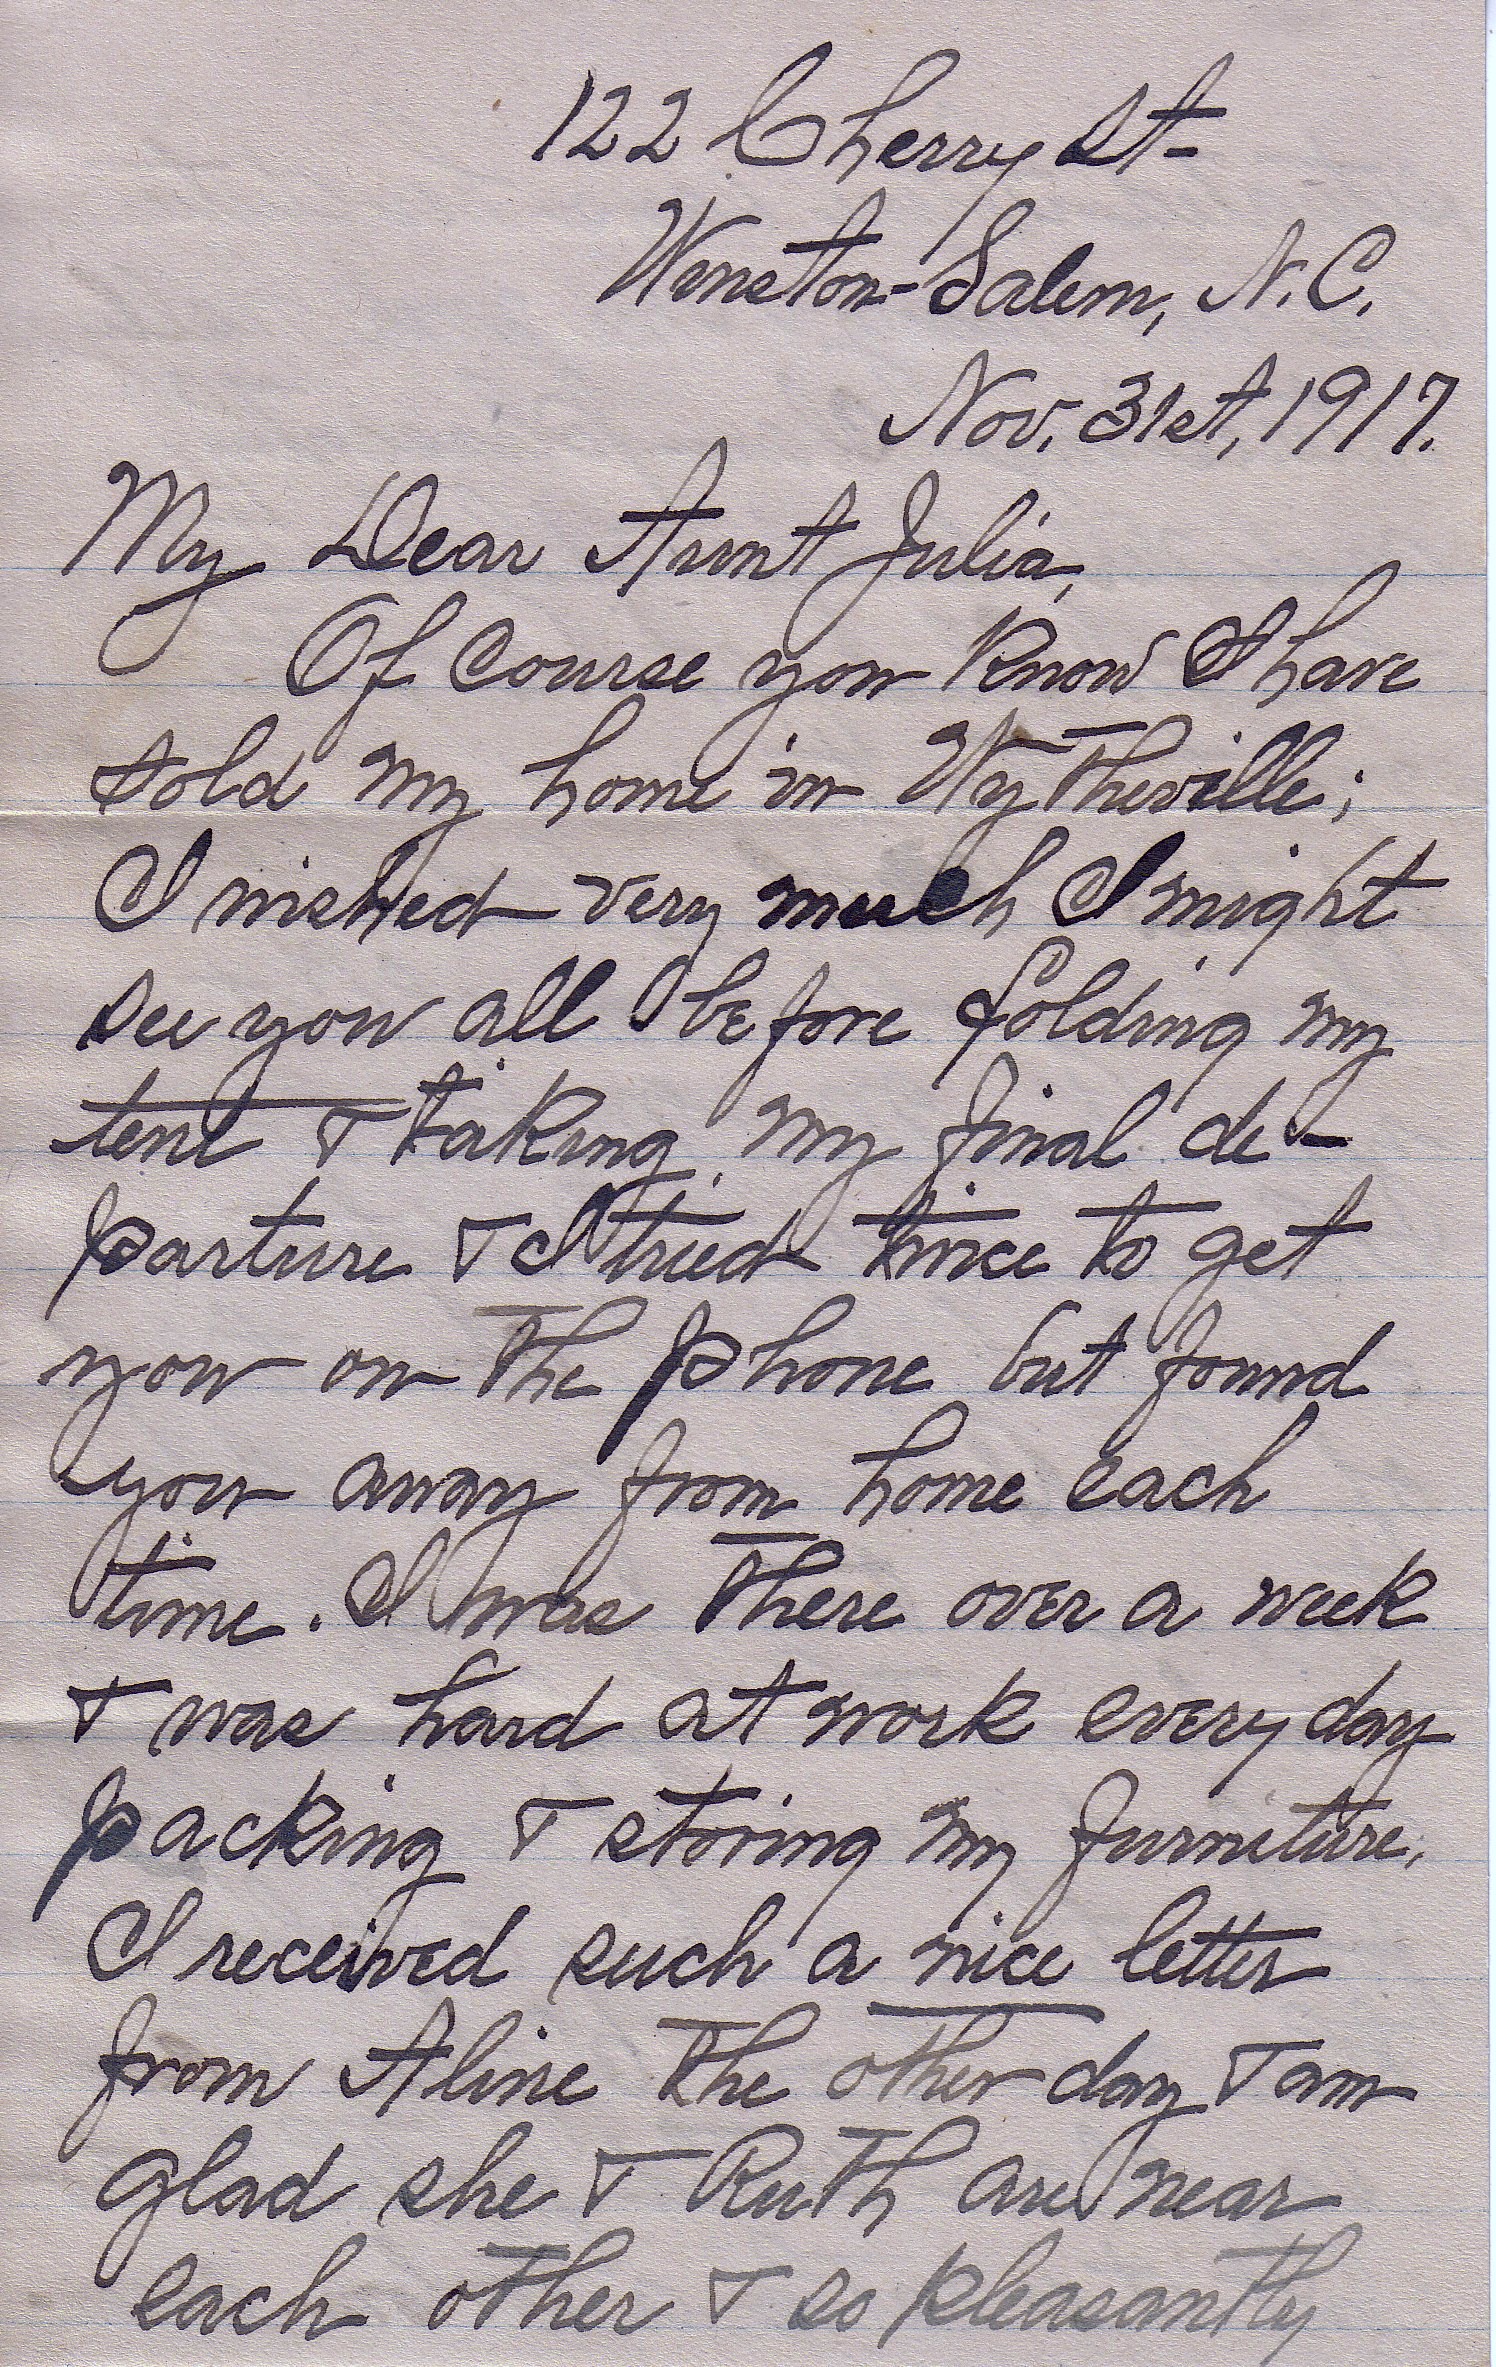 122 Cherry St-
Winston-Salem, N.C.
Nov. 31st, 1917.
My Dear Aunt Julia,
Of course you know I have
sold my home in Wytheville;
I wished very much I might
see you all before folding my
tent & taking my final de-
parture & I tried twice to get
you on the phone but found
you away from home each
time. I was there over a week
& was hard at work every day
packing & storing my furniture.
I received such a nice letter
from Aline the other day & am
glad she & Ruth are near
each other & so pleasantly